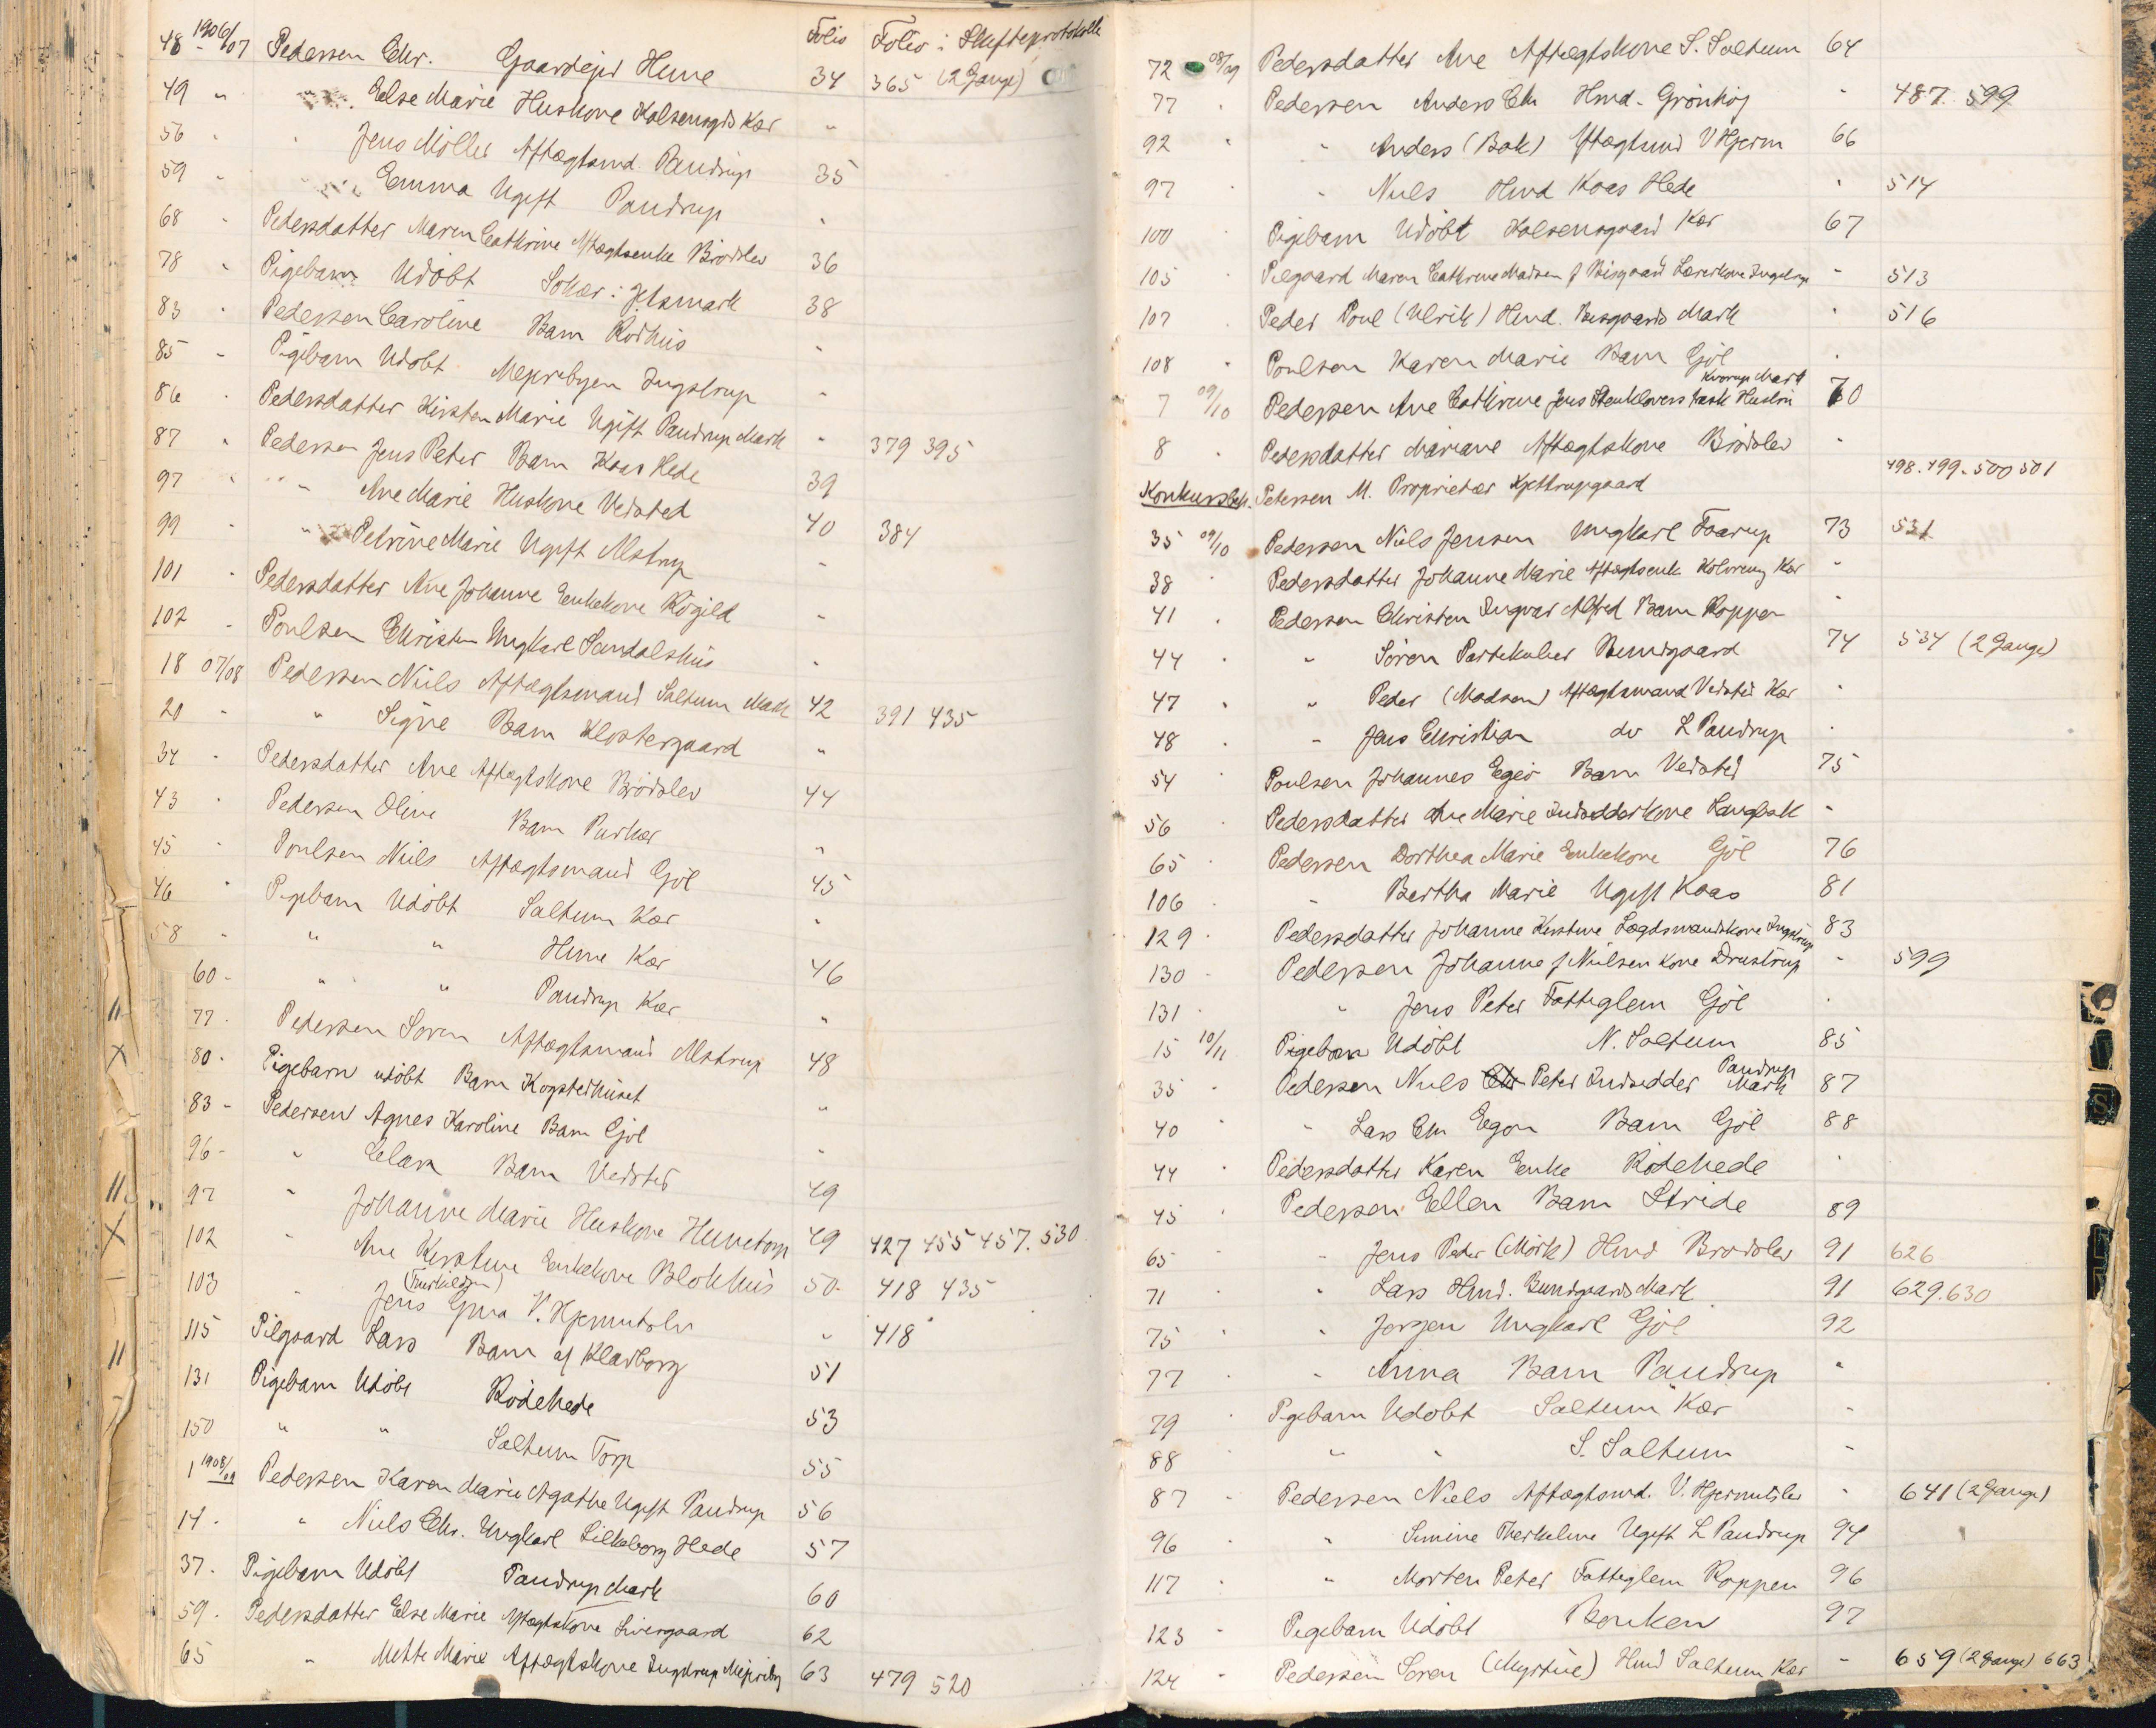 Folio Folio i Skifteprotokolle
48 1906/07 Pedersen Chr. Gaardejer Hune 34 365 (2 Gange)
49 " " Else Marie Huskone Kalsensgds Kær "
56 " " Jens Möller Aftægtsmd. Pandrup 35
59 " " Emma Ugift Pandrup "
68 " Pedersdatter Maren Cathrine Aftægtsenke Brödslev 36
78 " Pigebarn Udöbt Sokær: Jetsmark 38
83 " Pedersen Caroline Barn Rödhus "
85 " Pigebarn Udöbt Mejeribyen Ingstrup "
86 " Pedersdatter Kirsten Marie Ugift Pandrup Mark " 379 395
87 " Pedersen Jens Peter Barn Kaas Hede 39
97 " " Ane Marie Huskone Vedsted 40 384
99 " " Petrine Marie Ugift Alstrup "
101 " Pedersdatter Ane Johanne Enkekone Rögild "
102 " Poulsen Christen Ungkarl Sandalshus "
18 07/08 Pedersen Niels Aftægtsmand Saltum Mark 42 391 435
20 " " Signe Barn Klostergaard "
34 " Pedersdatter Ane Aftægtskone Brödslev 44
43 " Pedersen Oline Barn Purkær "
45 " Poulsen Niels Aftægtsmand Gjöl 45
46 " Pigebarn Udöbt Saltum Kær "
58 " " " Hune Kær 46
60 - " " Pandrup Kær "
77 - Pedersen Sören Aftægtsmand Alstrup 48
80 - Pigebarn udöbt Barn Kogstedhuset "
83 - Pedersen Agnes Karoline Barn Gjöl "
96 - " Clara Barn Vedsted 49
97 " Johanne Marie Huskone Hunetorp 49 427 455 457. 530
102 " Ane Kirstine Enkekone Blokhus 50 - 418 435
103 " Jens V. Hjermitslev " 418
115 Pilgaard Lars Barn af Klarborg 51
131 Pigebarn Udöbt Rödehede 53
150 " " Saltum Torp 55
1 1908/09 Pedersen Karen Marie Agathe Ugift Pandrup 56
14 - " Niels Chr. Ungkarl Silkeborg Hede 57
37 . Pigebarn Udöbt Pandrup Mark 60
59 . Pedersdatter Else Marie Aftægtskone Sivergaard 62
65 " Mette Marie Aftægtskone Ingstrup Mejeriby 63 479 520
72 08/09 Pedersdatter Ane Aftægtskone S. Saltum 64
77 " Pedersen Anders Chr Hmd. Grönhöj " 487 599
92 " " Anders (Bak) Aftægtsmd V Hjerm 66
97 " " Niels Hmd Kaas Hede " 514
100 " Pigebarn Udöbt Kalsensgaard Kær 67
105 " Pilgaard Maren Cathrine Madsen f Bisgaard Lærerkone Ingstrup " 513
107 " Peder Poul (Ulrik) Hmd. Bisgaards Mark " 516
108 " Poulsen Karen Marie Barn Gjöl "
7 09/10 Pedersen Ane Cathrine Jens Stenklövers fask Hustru Kvorup Mark 70
8 " Pedersdatter Mariane Aftægtskone Brödslev "
Konkursbeh. Petersen M. Proprietær Kjettrupgaard 498. 499. 500 501
35 09/10 Pedersen Niels Jensen Ungkarl Faarup 73 531
38 " Pedersdatter Johanne Marie Aftægtsenk. Kolvreng Kær "
41 " Pedersen Christen Ingvar Alfred Barn Koppen "
44 " " Sören Partikulier Bundgaard 74 534 (2 Gange)
47 " " Peder (Madsen) Aftægtsmand Vedsted Kær "
48 " " Jens Christian do L Pandrup "
54 " Poulsen Johannes Egeö Barn Vedsted 75
56 " Pedersdatter Ane Marie Indsidderkone Langbak "
65 " Pedersen Dorthea Marie Enkekone Gjöl 76
106 " " Bertha Marie Ugift Kaas 81
129 - Pedersdatter Johanne Kirstine Lægdsmandskone Ingstrup 83
130 - Pedersen Johanne f Nielsen Kone Drustrup " 599
131 - " Jens Peter Fattiglem Gjöl "
15 10/11 Pigebarn Udöbt N. Saltum 85
35 - Pedersen Niels Chr Peter Indsidder Pandrup Mark 87
40 " " Lars Chr Egon Barn Gjöl 88
44 " Pedersdatter Karen Enke Rödehede "
45 " Pedersen Ellen Barn Stride 89
65 " " Jens Peder (Mörk) Hmd Brödslev 91 626
71 " " Lars Hmd. Bundgaards Mark 91 629. 630
75 " " Jörgen Ungkarl Gjöl 92
77 " " Anna Barn Pandrup "
79 " Pigebarn Udöbt Saltum Kær "
88 " " " S. Saltum "
87 " Pedersen Niels Aftægtsmd. V. Hjermitslev " 641 (2 Gange)
96 " " Simine Therkeline Ugift L Pandrup 94
117 " " Morten Peter Fattiglem Koppen 96
123 " Pigebarn Udöbt Bonken 97
124 " Pedersen Sören (Myrtue) Hmd Saltum Kær " 659 (2 Gange) 663